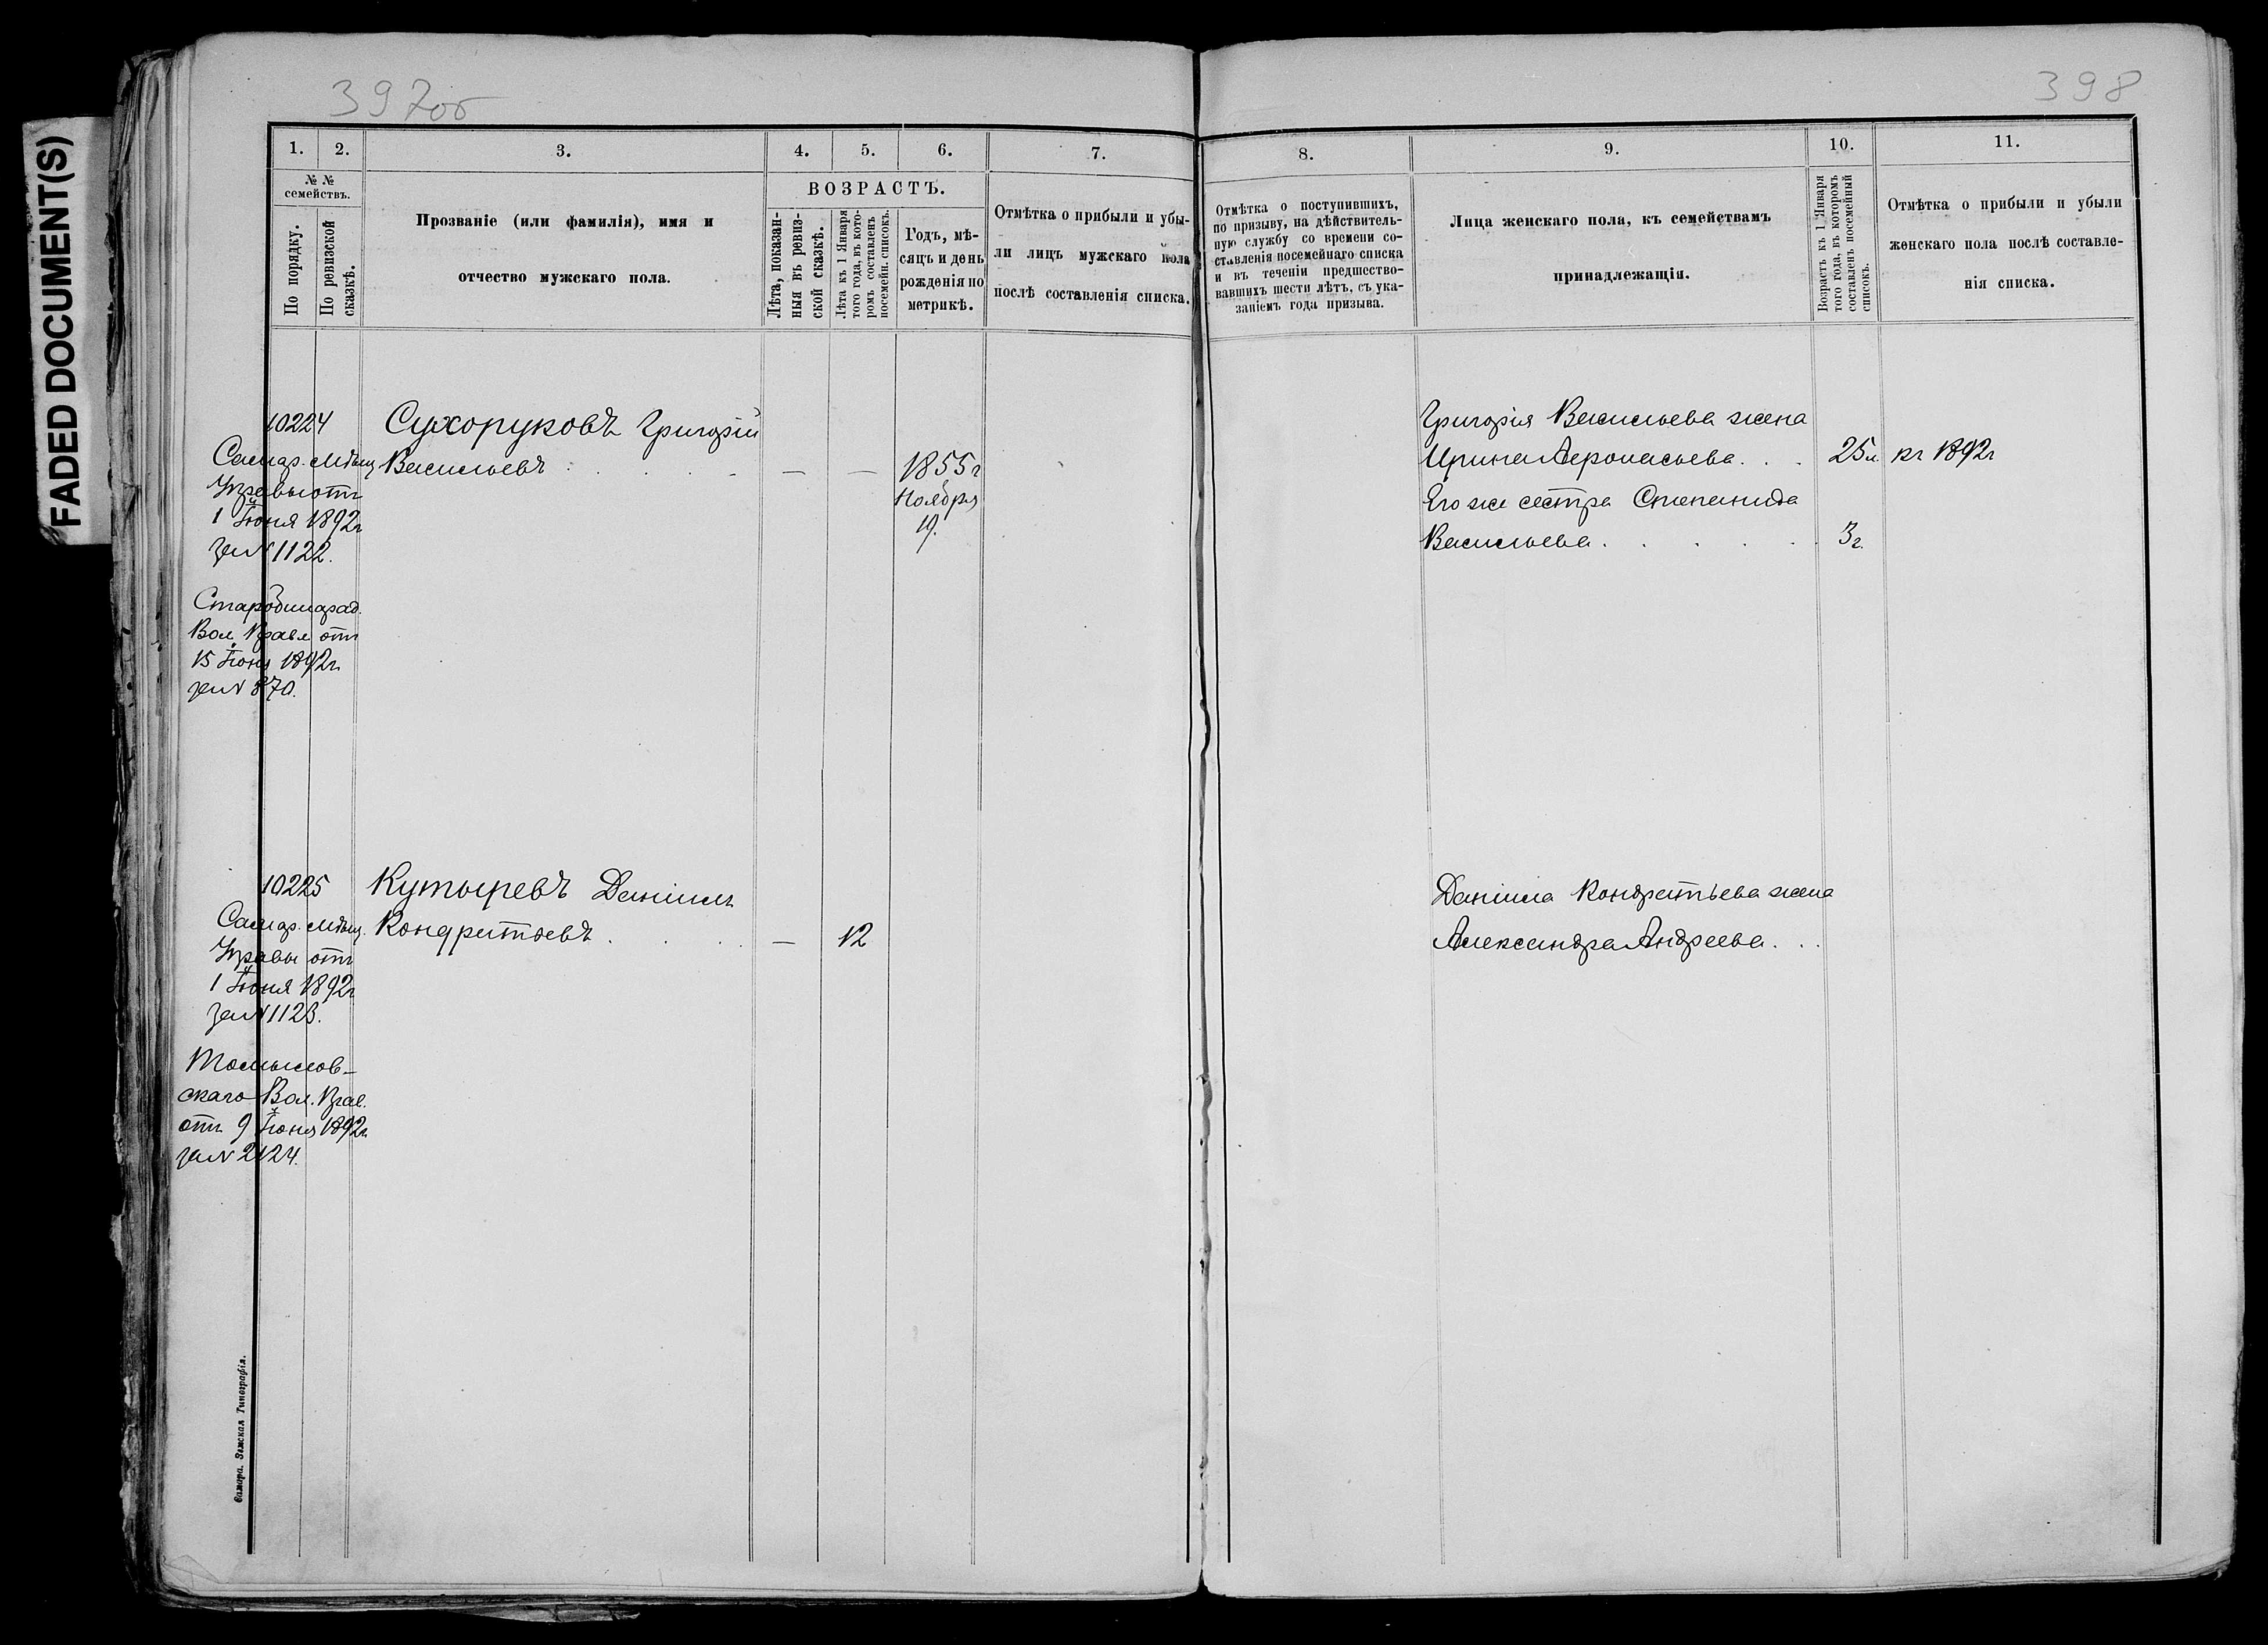 FADED DOCUMENT(S)
397об
398
1. 2. 3. 4. 5. 6. 7. 8. 9. 10. 11.
№ №
семействъ.
По порядку.
По ревизской
сказкѣ.
Прозваніе (или фамилія), имя и
отчество мужскаго пола.
ВОЗРАСТЪ.
Лѣта, показан-
ныя въ ревиз-
ской сказкѣ.
Лѣта къ 1 Января
того года, въ кото-
ромъ составленъ
посемейн. списокъ.
Годъ, мѣ-
сяцъ и день
рожденія по
метрикѣ.
Отмѣтка о прибыли и убы-
ли лицъ мужскаго пола
послѣ составленія списка.
Отмѣтка о поступившихъ,
по призыву, на дѣйствитель-
ную службу со времени со-
ставленія посемейнаго списка
и въ теченіи предшество-
вавшихъ шести лѣтъ, съ ука-
заніемъ года призыва.
Лица женскаго пола, къ семействамъ
принадлежащія.
Возрастъ къ 1 Января
того года, въ которомъ
составленъ посемейный
списокъ.
Отмѣтка о прибыли и убыли
женскаго пола послѣ составле-
нія списка.
10224
Самар. мѣщ.
Управы отъ
1 Іюня 1892г
за N 1122.
Вол. Правл отъ
15 Іюня 1892г.
за N 870.
Сухоруковъ Григорій
Васильевъ . . . . — —
1855г
Ноября
19.
Григорія Васильева жена
Ирина Аѳонасьева. . . 25л. къ 1892г
Его же сестра Степанида
Васильева. . . . . 3г.
10225
Самар. мѣщ.
Управы отъ
1 Іюня 1892г
за N 1123.
скаго Вол. Прав.
отъ 9 Іюня 1892г.
за N 2124.
Кутыревъ Даніилъ
Кондратьевъ . . . . — 12
Даніила Кондратьева жена
Александра Андреева. . .
Самара. Земская Типографія.